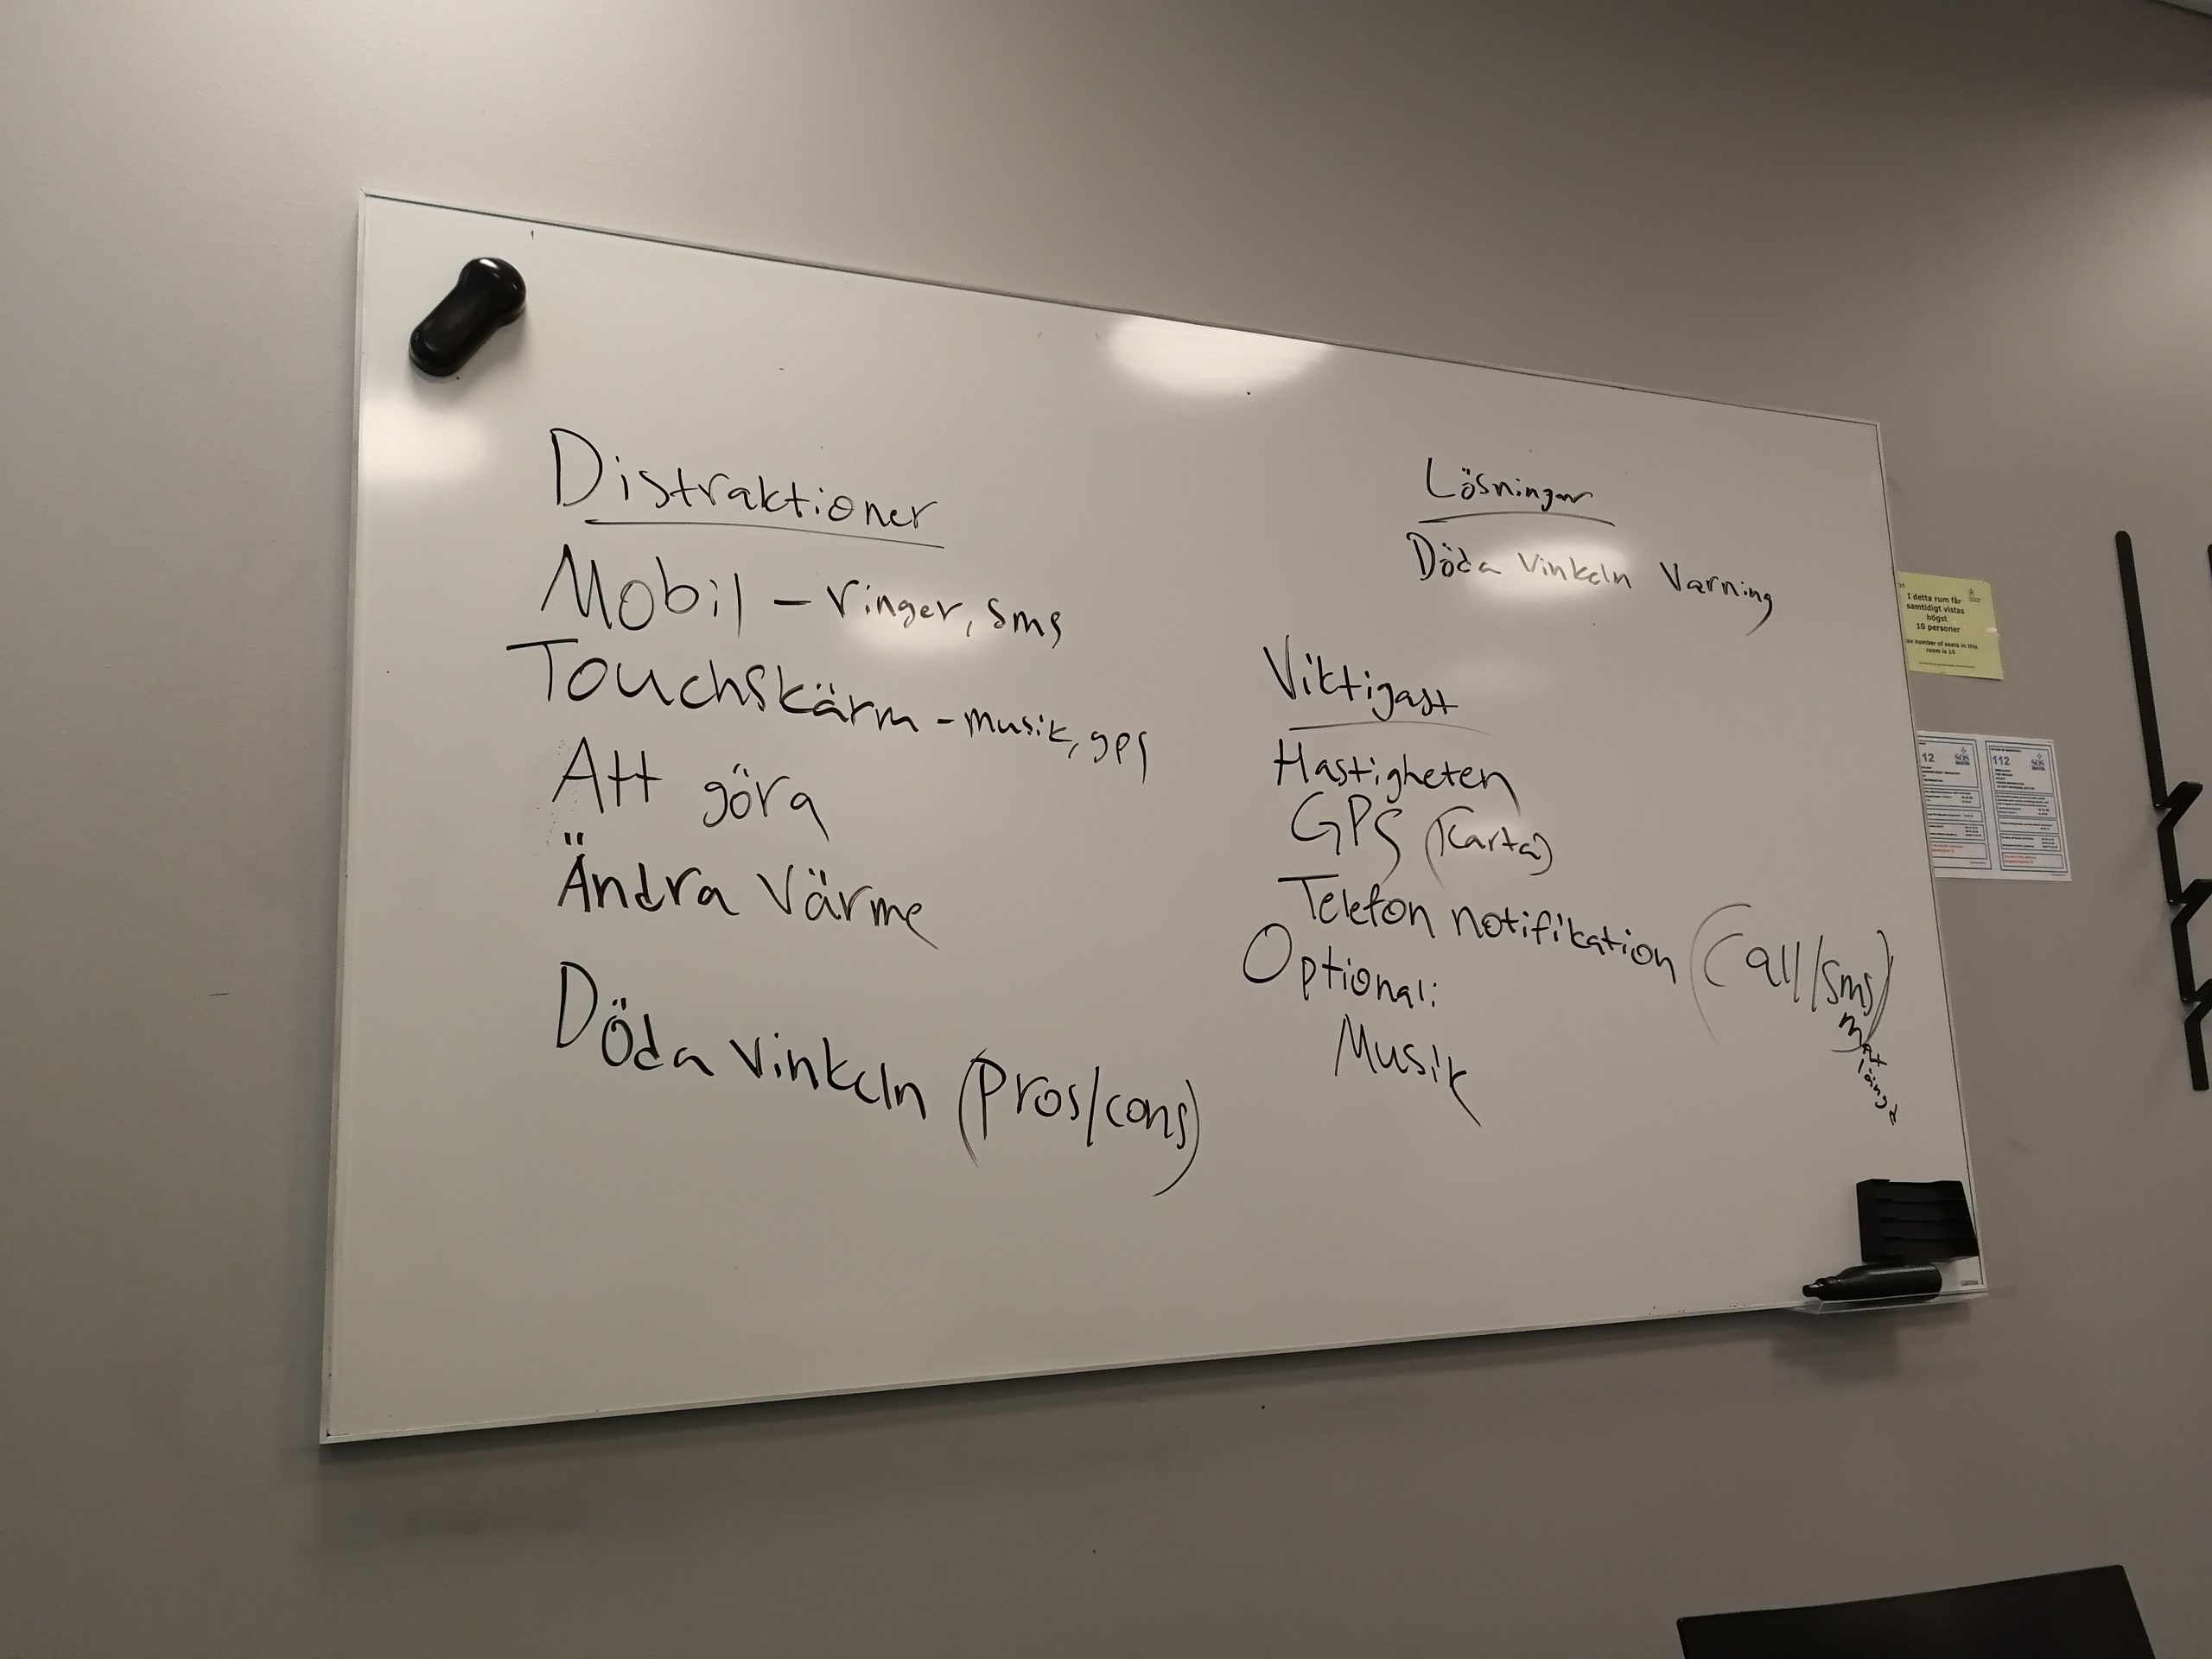 Distraktioner
Mobil - ringer, sms
Touchskärm - musik, gps
Att göra
Ändra värme
Döda vinkeln (pros/cons)
Lösningar
Döda vinkeln varning
Viktigast
Hastigheten
GPS (karta)
Telefon notifikation (call/sms)
max längd
Optional:
Musik
I detta rum får
samtidigt vistas
högst
10 personer
max number of seats in this
room is 10
112
SOS
112
SOS